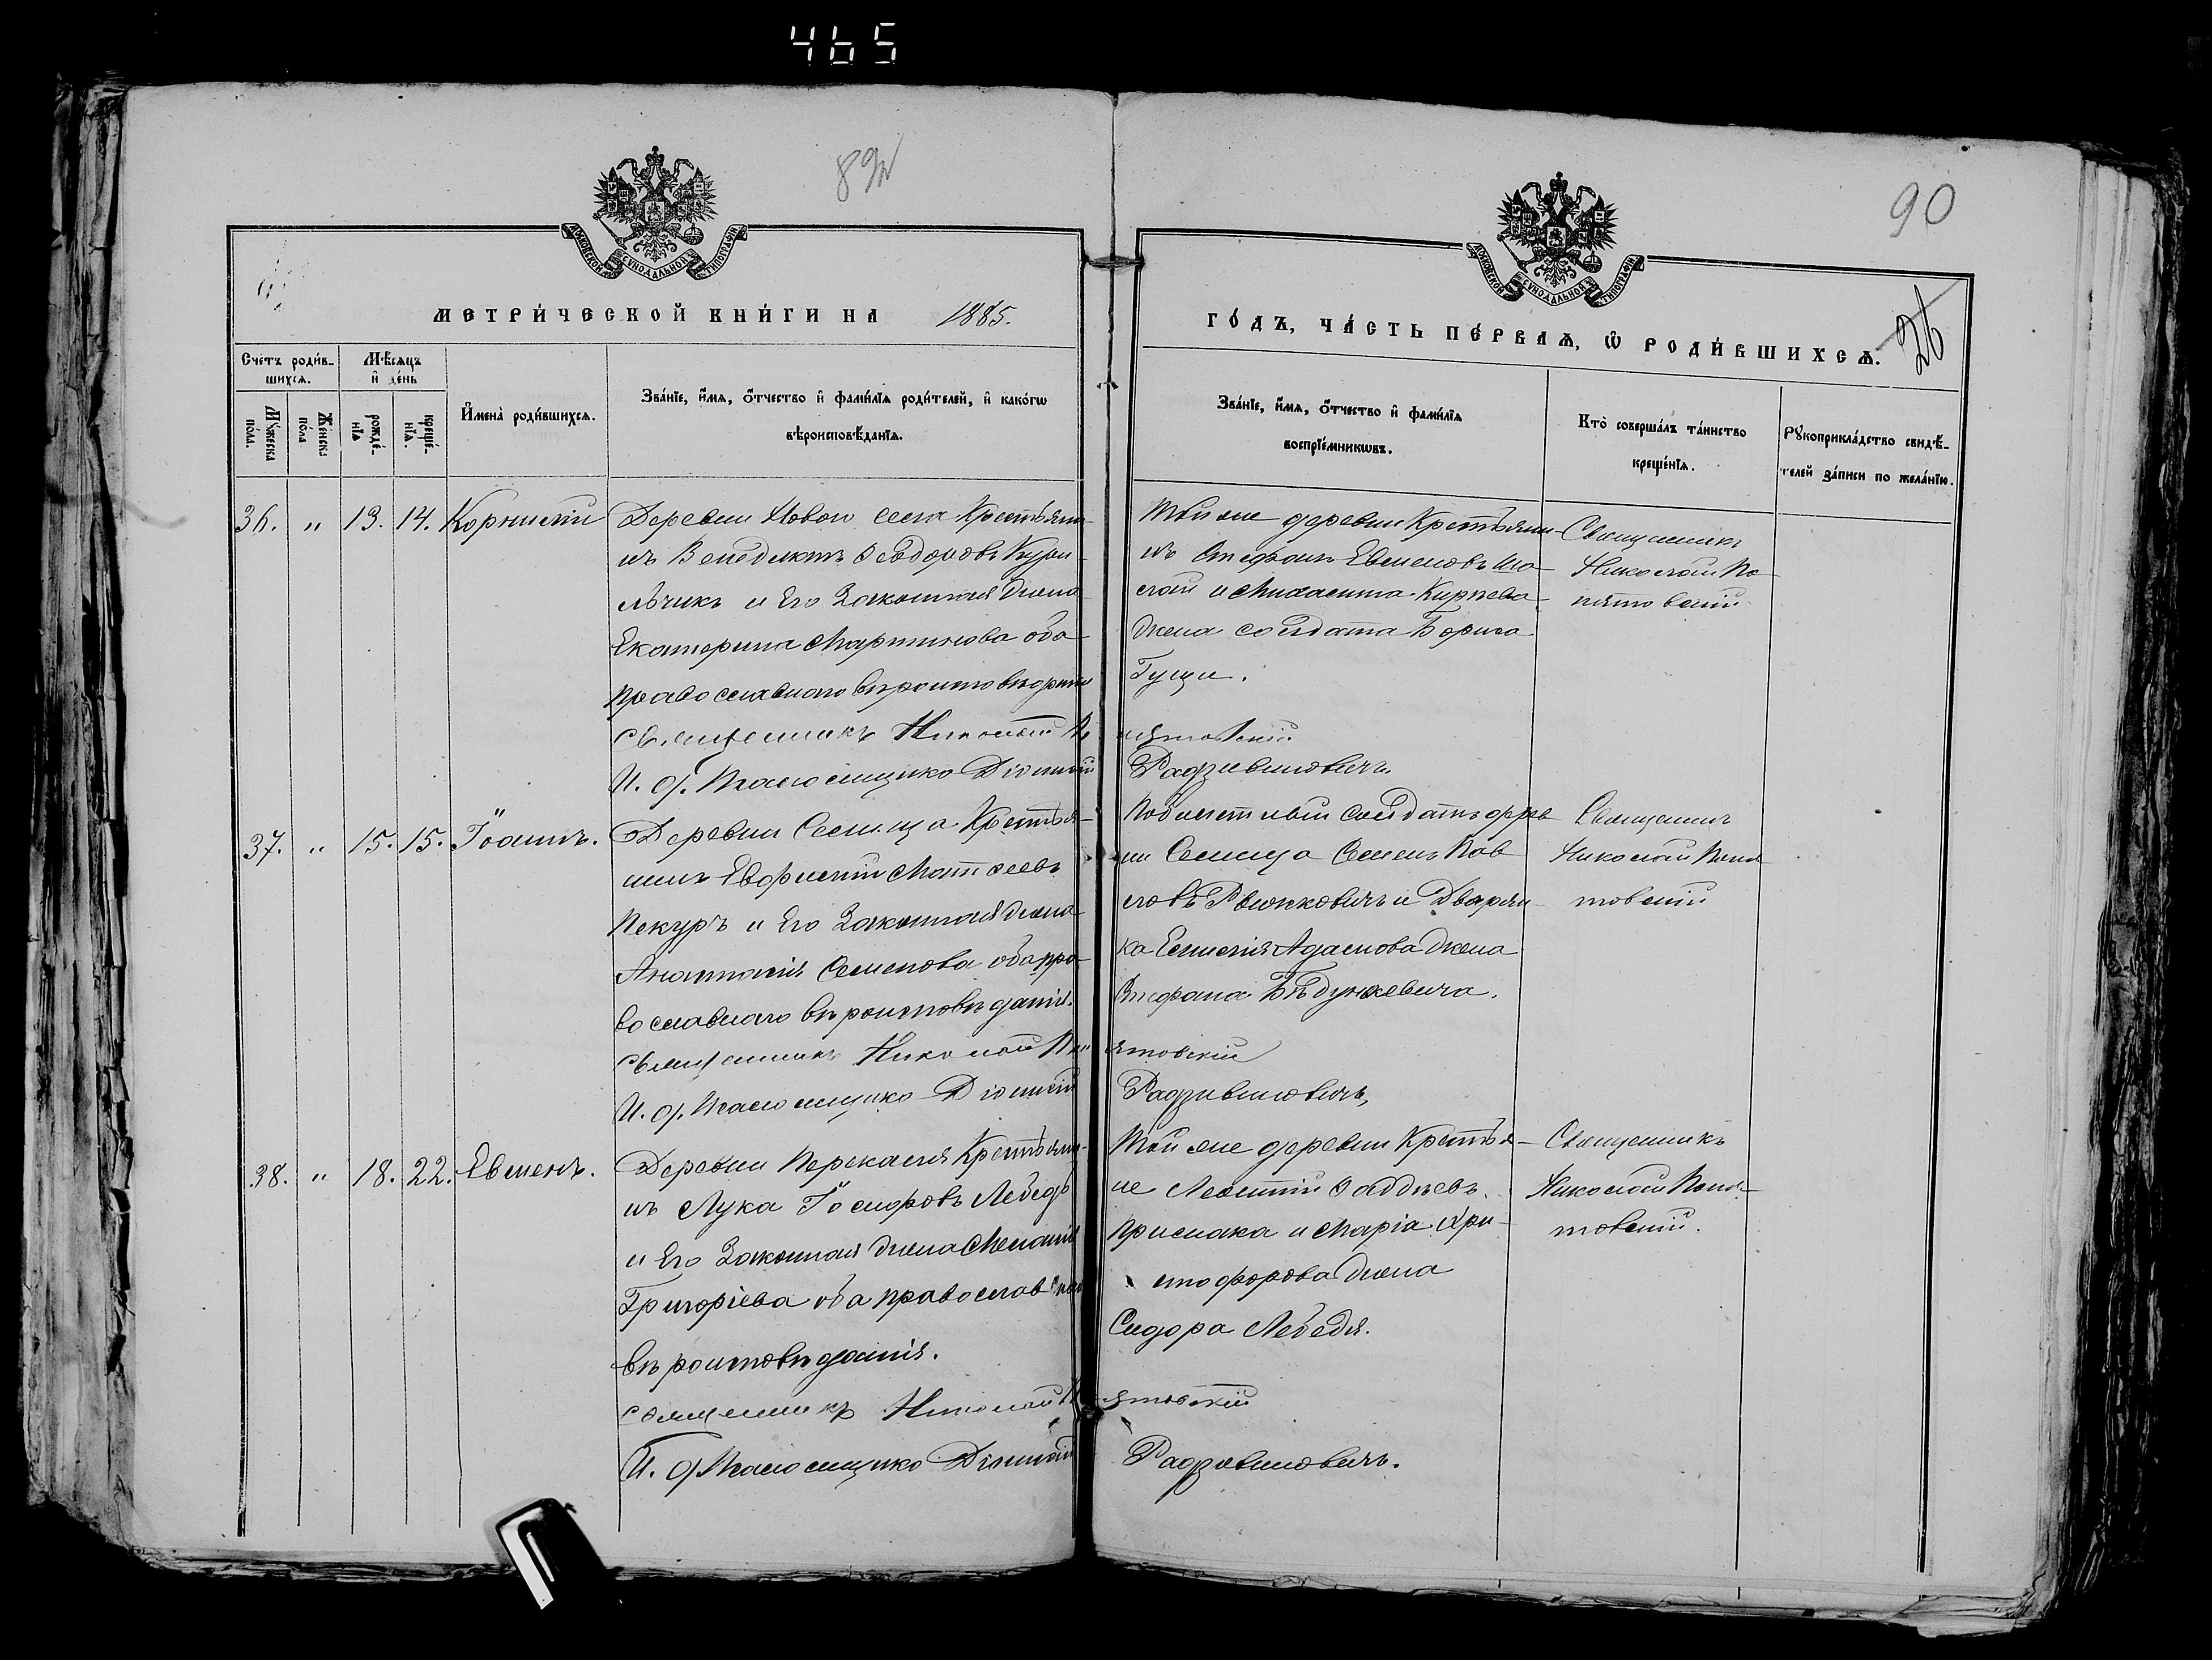 465
89
90
МОСКОВСКОЙ СѴНОДАЛЬНОЙ ТИПОГРАФІИ
МОСКОВСКОЙ СѴНОДАЛЬНОЙ ТИПОГРАФІИ
МЕТРИ́ЧЕСКОЙ КНИ́ГИ НА 1885.
ГО́ДЪ, ЧА́СТЬ ПЕ́РВАѦ, Ѡ҆ РОДИ́ВШИХСѦ. 26
Сче́тъ роди́в-
шихсѧ.
Му́жеска
по́ла.
Же́нска
по́ла
Мѣ́сѧцъ
и҆ де́нь
рожде́-
нїѧ
креще́-
нїѧ.
И҆мена̀ роди́вшихсѧ.
Зва́нїе, и҆́мѧ, ѻ҆́тчество и҆ фами́лїѧ роди́телей, и҆ како́гѡ
вѣроисповѣ́данїѧ.
Зва́нїе, и҆́мѧ, ѻ҆́тчество и҆ фами́лїѧ
воспрїе́мникѡвъ.
Кто̀ соверша́лъ та́инство
креще́нїѧ.
Рꙋкоприкла́дство свидѣ́-
телей за́писи по жела́нїю.
36. " 13. 14. Корнилій
Деревни Новои села Крестьяни-
нъ Венедиктъ Ѳеѣдоровъ Кури-
льчикъ и Его Законная жена
Екатерина Мартинова оба
православнаго вѣроисповѣдания
священникъ Николай По
нятовскій
И. д. Псаломщика Діонисій
Радзивиновичъ
Той же деревни Крестьяни-
нъ Стефанъ Евменовъ
и Михалина
жена солдата Бориса
Гущи.
Священникъ
Николай По-
нятовскій
37. " 15. 15. Іоаннъ.
Деревни Селища Крестья-
нинъ Евфимій Матѳеевъ
Пекуръ и Его Законная жена
Анастасія Семенова оба пра-
вославнаго вѣроисповѣданія.
священникъ Николай Пон
ятовскій
И. д. Псаломщика Діонисій
Радзивиновичъ,
солдатъ дерев
ни Селища Семенъ Пав
ловъ и Дворян-
ка Адамова жена
Стефана Бѣдункевича.
Священникъ
Николай Поня
товскій
38. " 18. 22. Евменъ.
Деревни Перекалля Крестьяни-
нъ Лука Іосифовъ Лебедь
и Его Законная жена Меланія
Григоріева оба православнаго
вѣроисповѣданія.
священникъ Николай Пон
ятовскій
И. д. Псаломщика Діонисій
Радзивиновичъ.
Той же деревни Крестья-
не Леонтій Ѳаддѣевъ
Примака и Марія Хри-
стофорова жена
Сидора Лебедя.
Священникъ
Николай Поня-
товскій.